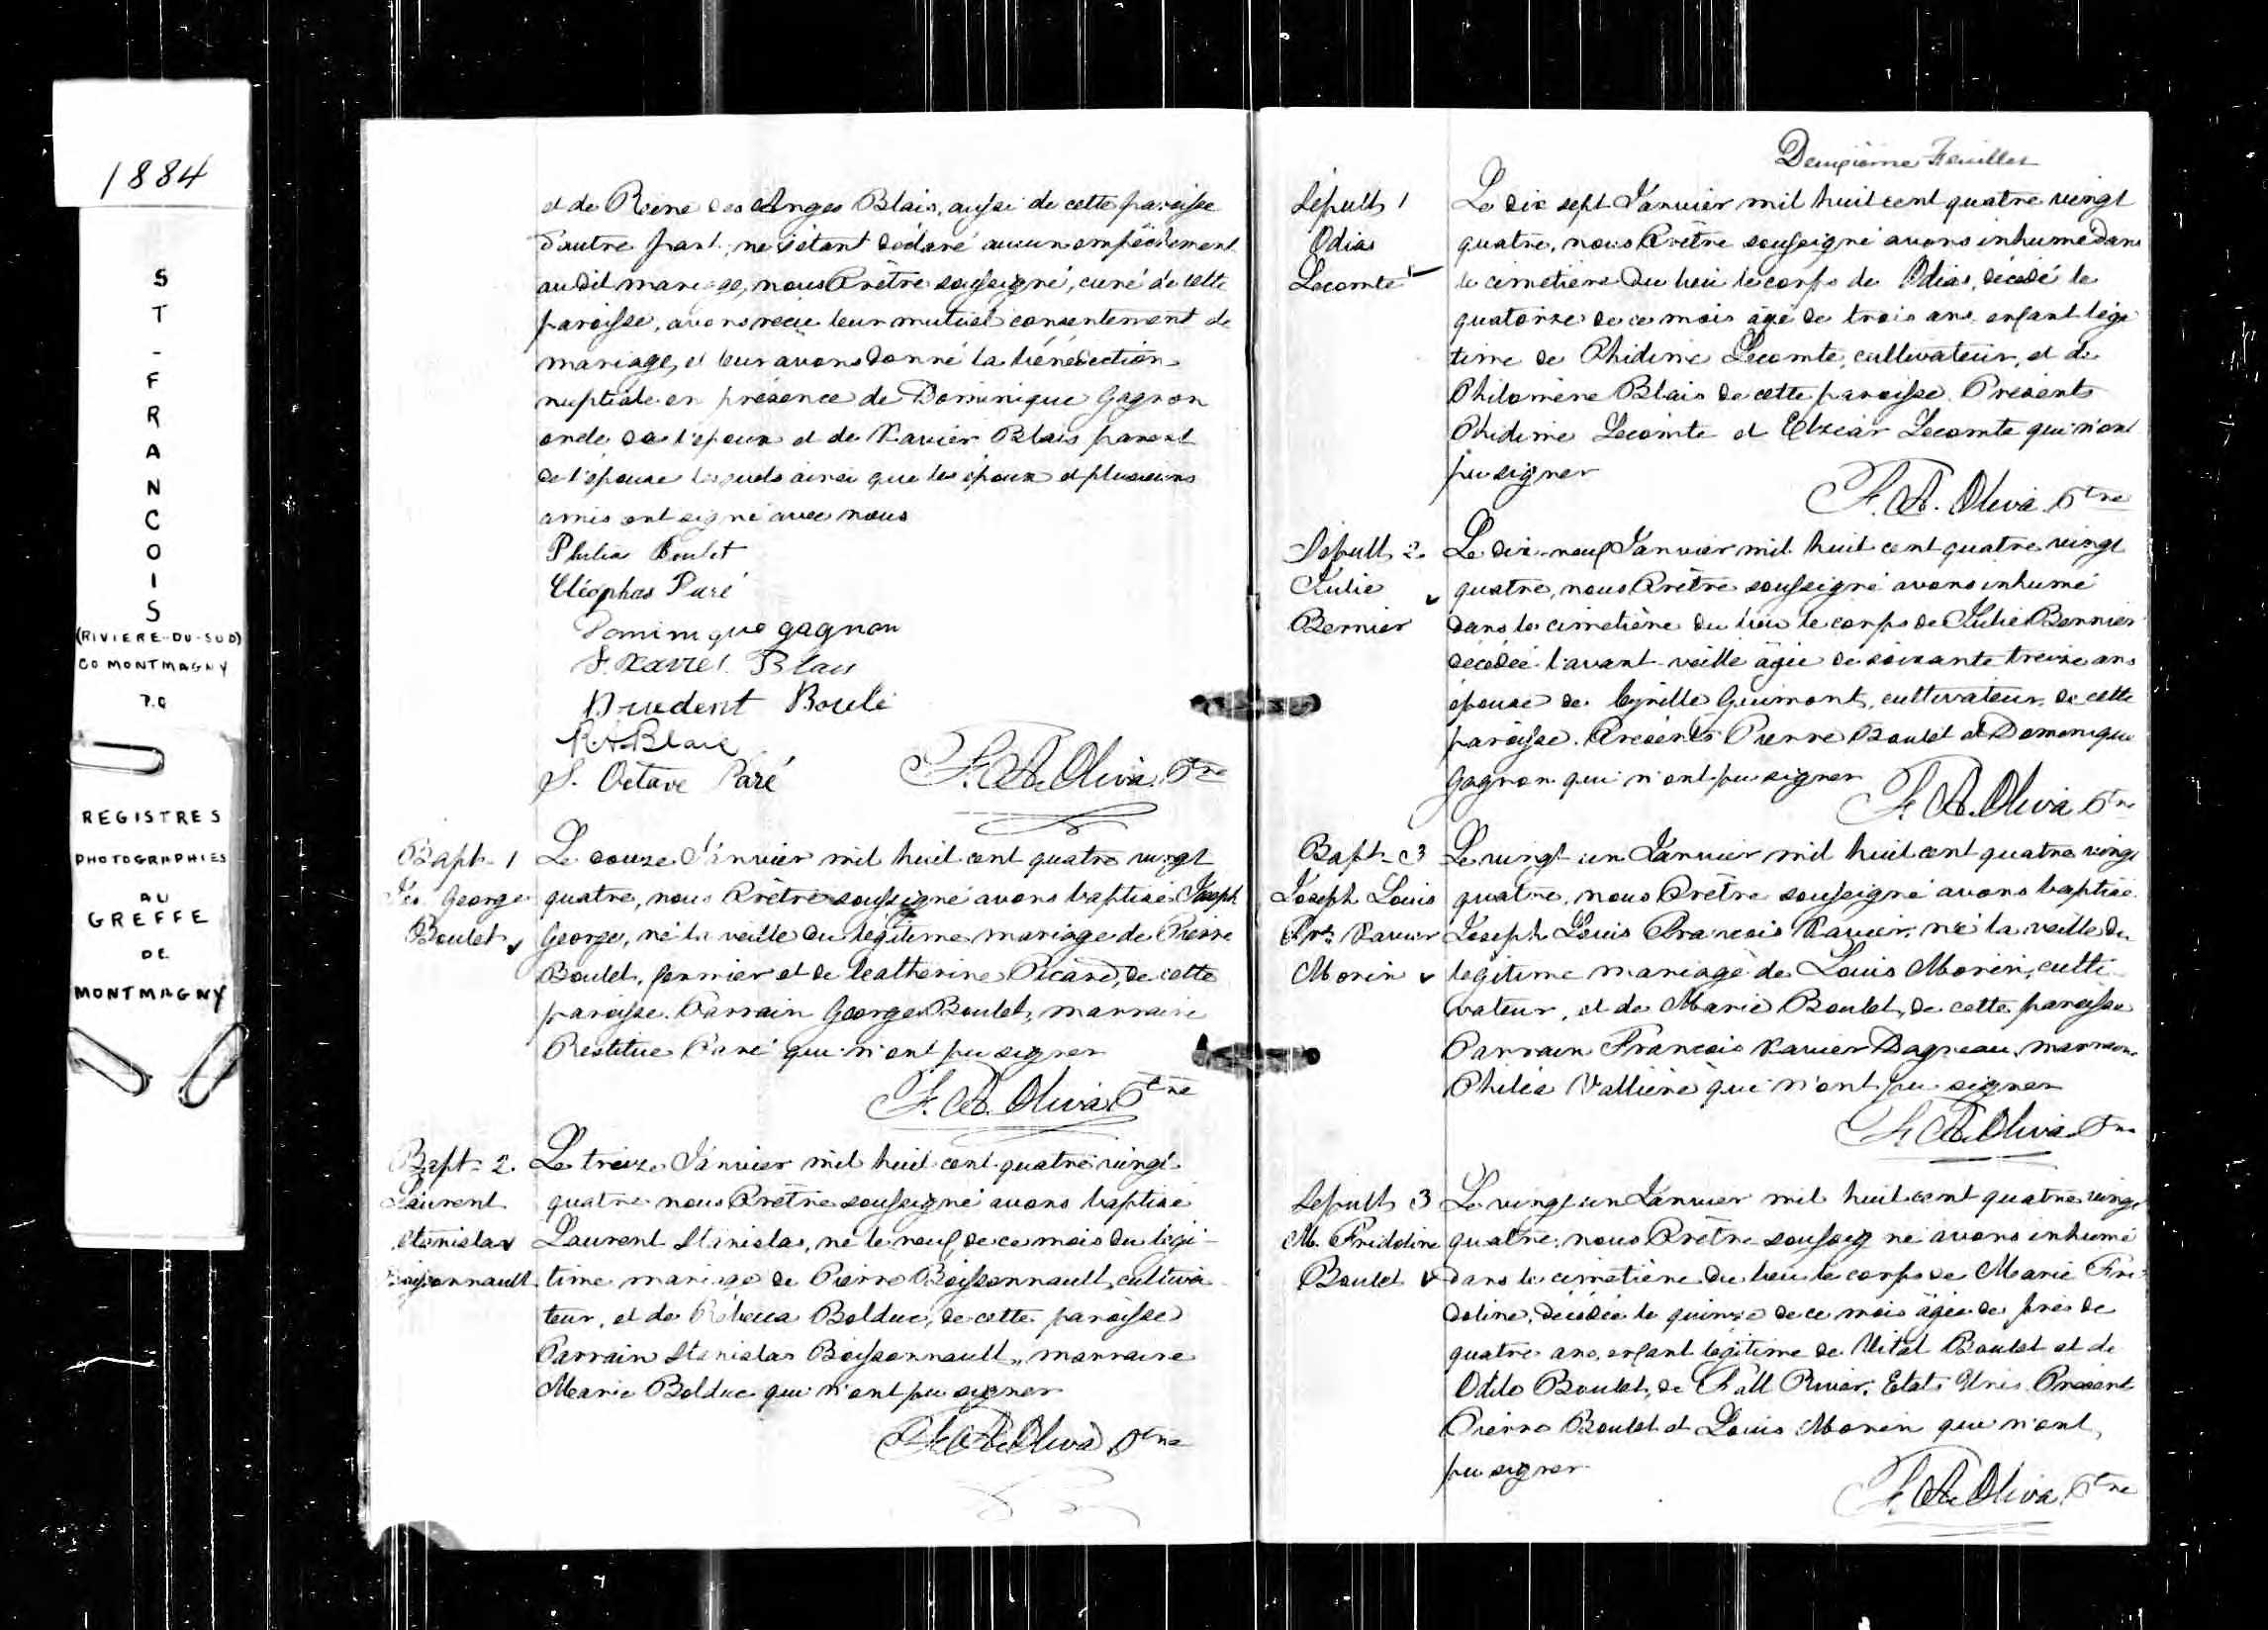 1884
ST-FRANCOIS
(RIVIERE-DU-SUD)
CO MONTMAGNY
P.Q
REGISTRES
PHOTOGRAPHIES
AU
GREFFE
DE
MONTMAGNY
et de Reine des Anges Blais, aussi de cette paroisse
d'autre part, ne s'étant déclaré aucun empêchement
au dit mariage, nous Prêtre soussigné, curé de cette
paroisse, avons reçu leur mutuel consentement de
mariage, et leur avons donné la bénédiction
nuptiale en présence de Dominique Gagnon
oncle de l'époux et de Xavier Blais parent
de l'épouse lesquels ainsi que les époux et plusieurs
amis ont signé avec nous
Philias Boulet
Cléophas Paré
Dominique gagnon
F. Xavier Blais
Prudent Boulé
Blais
S. Octave Paré
F. A. Oliva Ptre
Bapt. 1
Jos. George
Boulet
Le douze Janvier mil huit cent quatre vingt
quatre, nous Prêtre soussigné avons baptisé Joseph
George, né la veille du légitime mariage de Pierre
Boulet, fermier et de Catherine Picard, de cette
paroisse. Parrain George Boulet, marraine
Restitue Paré qui n'ont pu signer
F. A. Oliva Ptre
Bapt. 2.
Laurent
Stanislas
Boissonnault
Le treize Janvier mil huit cent quatre vingt
quatre nous Prêtre soussigné avons baptisé
Laurent Stanislas, né le neuf de ce mois du légi-
time mariage de Pierre Boissonnault, cultiva
teur, et de Rébecca Bolduc, de cette paroisse
Parrain Stanislas Boissonnault, marraine
Marie Bolduc qui n'ont pu signer
F. A. Oliva Ptre
Deuxième Feuillet
Sépult. 1
Odias
Lecomte
Le dix sept Janvier mil huit cent quatre vingt
quatre, nous Prêtre soussigné avons inhumé dans
le cimetière du lieu le corps de Odias, décédé le
quatorze de ce mois âgé de trois ans enfant légi
time de Phidime Lecomte, cultivateur, et de
Philomène Blais de cette paroisse. Présents
Phidime Lecomte et Elzéar Lecomte qui n'ont
pu signer
F. A. Oliva Ptre
Sépult. 2.
Julie
Bernier
Le dix-neuf Janvier mil huit cent quatre vingt
quatre, nous Prêtre soussigné avons inhumé
dans le cimetière du lieu le corps de Julie Bernier
décédée l'avant-veille âgée de soixante treize ans
épouse de Cyrille Guimont, cultivateur, de cette
paroisse. Présents Pierre Boulet et Dominique
Gagnon qui n'ont pu signer
F. A. Oliva Ptre
Bapt. 3
Joseph Louis
Frs. Xavier
Morin
Le vingt-un Janvier mil huit cent quatre vingt
quatre, nous Prêtre soussigné avons baptisé
Joseph Louis François Xavier, né la veille du
légitime mariage de Louis Morin, culti
vateur, et de Marie Boulet, de cette paroisse
Parrain François Xavier Dagneau, marraine
Philéa Vallière qui n'ont pu signer
F. A. Oliva Ptre
Sépult. 3
M. Fridoline
Boulet
Le vingt-un Janvier mil huit cent quatre vingt
quatre, nous Prêtre soussigné avons inhumé
dans le cimetière du lieu le corps de Marie Fri-
doline, décédée le quinze de ce mois âgée de près de
quatre ans, enfant légitime de Vital Boulet et de
Odile Boulet, de Fall River, Etats Unis. Présent
Pierre Boulet et Louis Morin qui n'ont
pu signer
F. A. Oliva Ptre